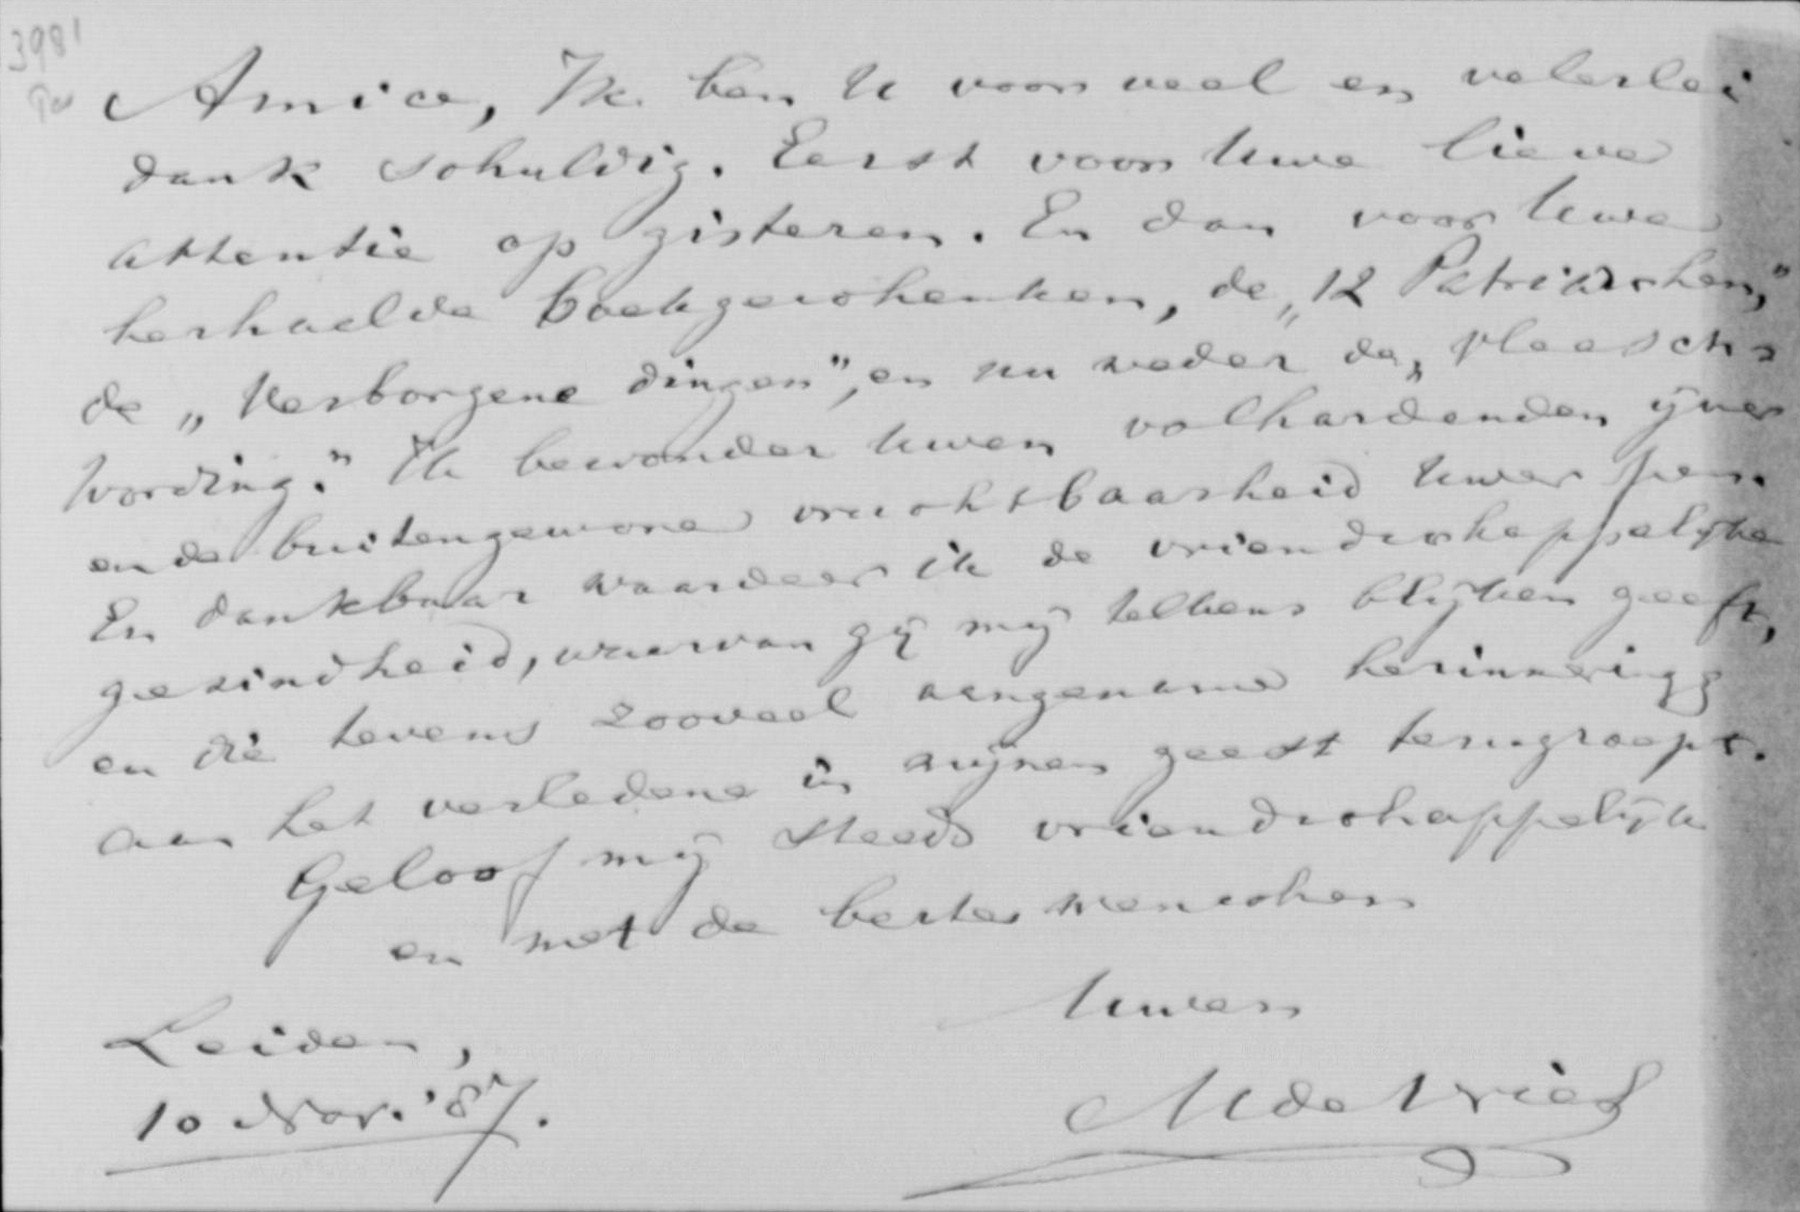 3981
Amice, Ik ben U voor veel en velerlei
dank schuldig. Eerst voor Uwe lieve
attentie op gisteren. En dan voor Uwe
herhaelde boekgeschenken, de „12 Patriarchen,"
de „Verborgene dingen", en nu weder de „Vleesch-
wording." Ik bewonder Uwen volhardenden ijver
en de buitengewone vruchtbaarheid Uwer pen.
En dankbaar waardeer ik de vriendschappelijke
gezindheid, waarvan gij mij telkens blijken geeft,
en die tevens zooveel aangename herinnering
aan het verledene in mijnen geest terugroept.
Geloof mij steeds vriendschappelijk
en met de beste wenschen
Uwen
Leiden,
10 Nov. '87.
M de Vries